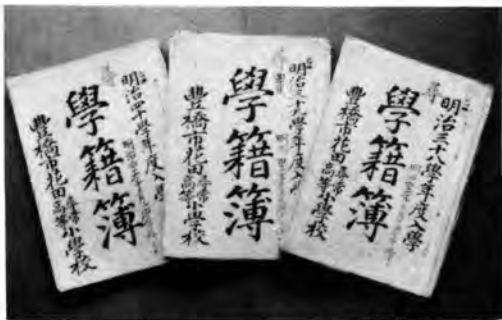 尋
明治三十八學年度入學
學籍簿
豐橋市花田尋常高等小學校
明治三十九學年度入學
學籍簿
豐橋市花田尋常高等小學校
尋
明治四十學年度入學
學籍簿
豐橋市花田尋常高等小學校